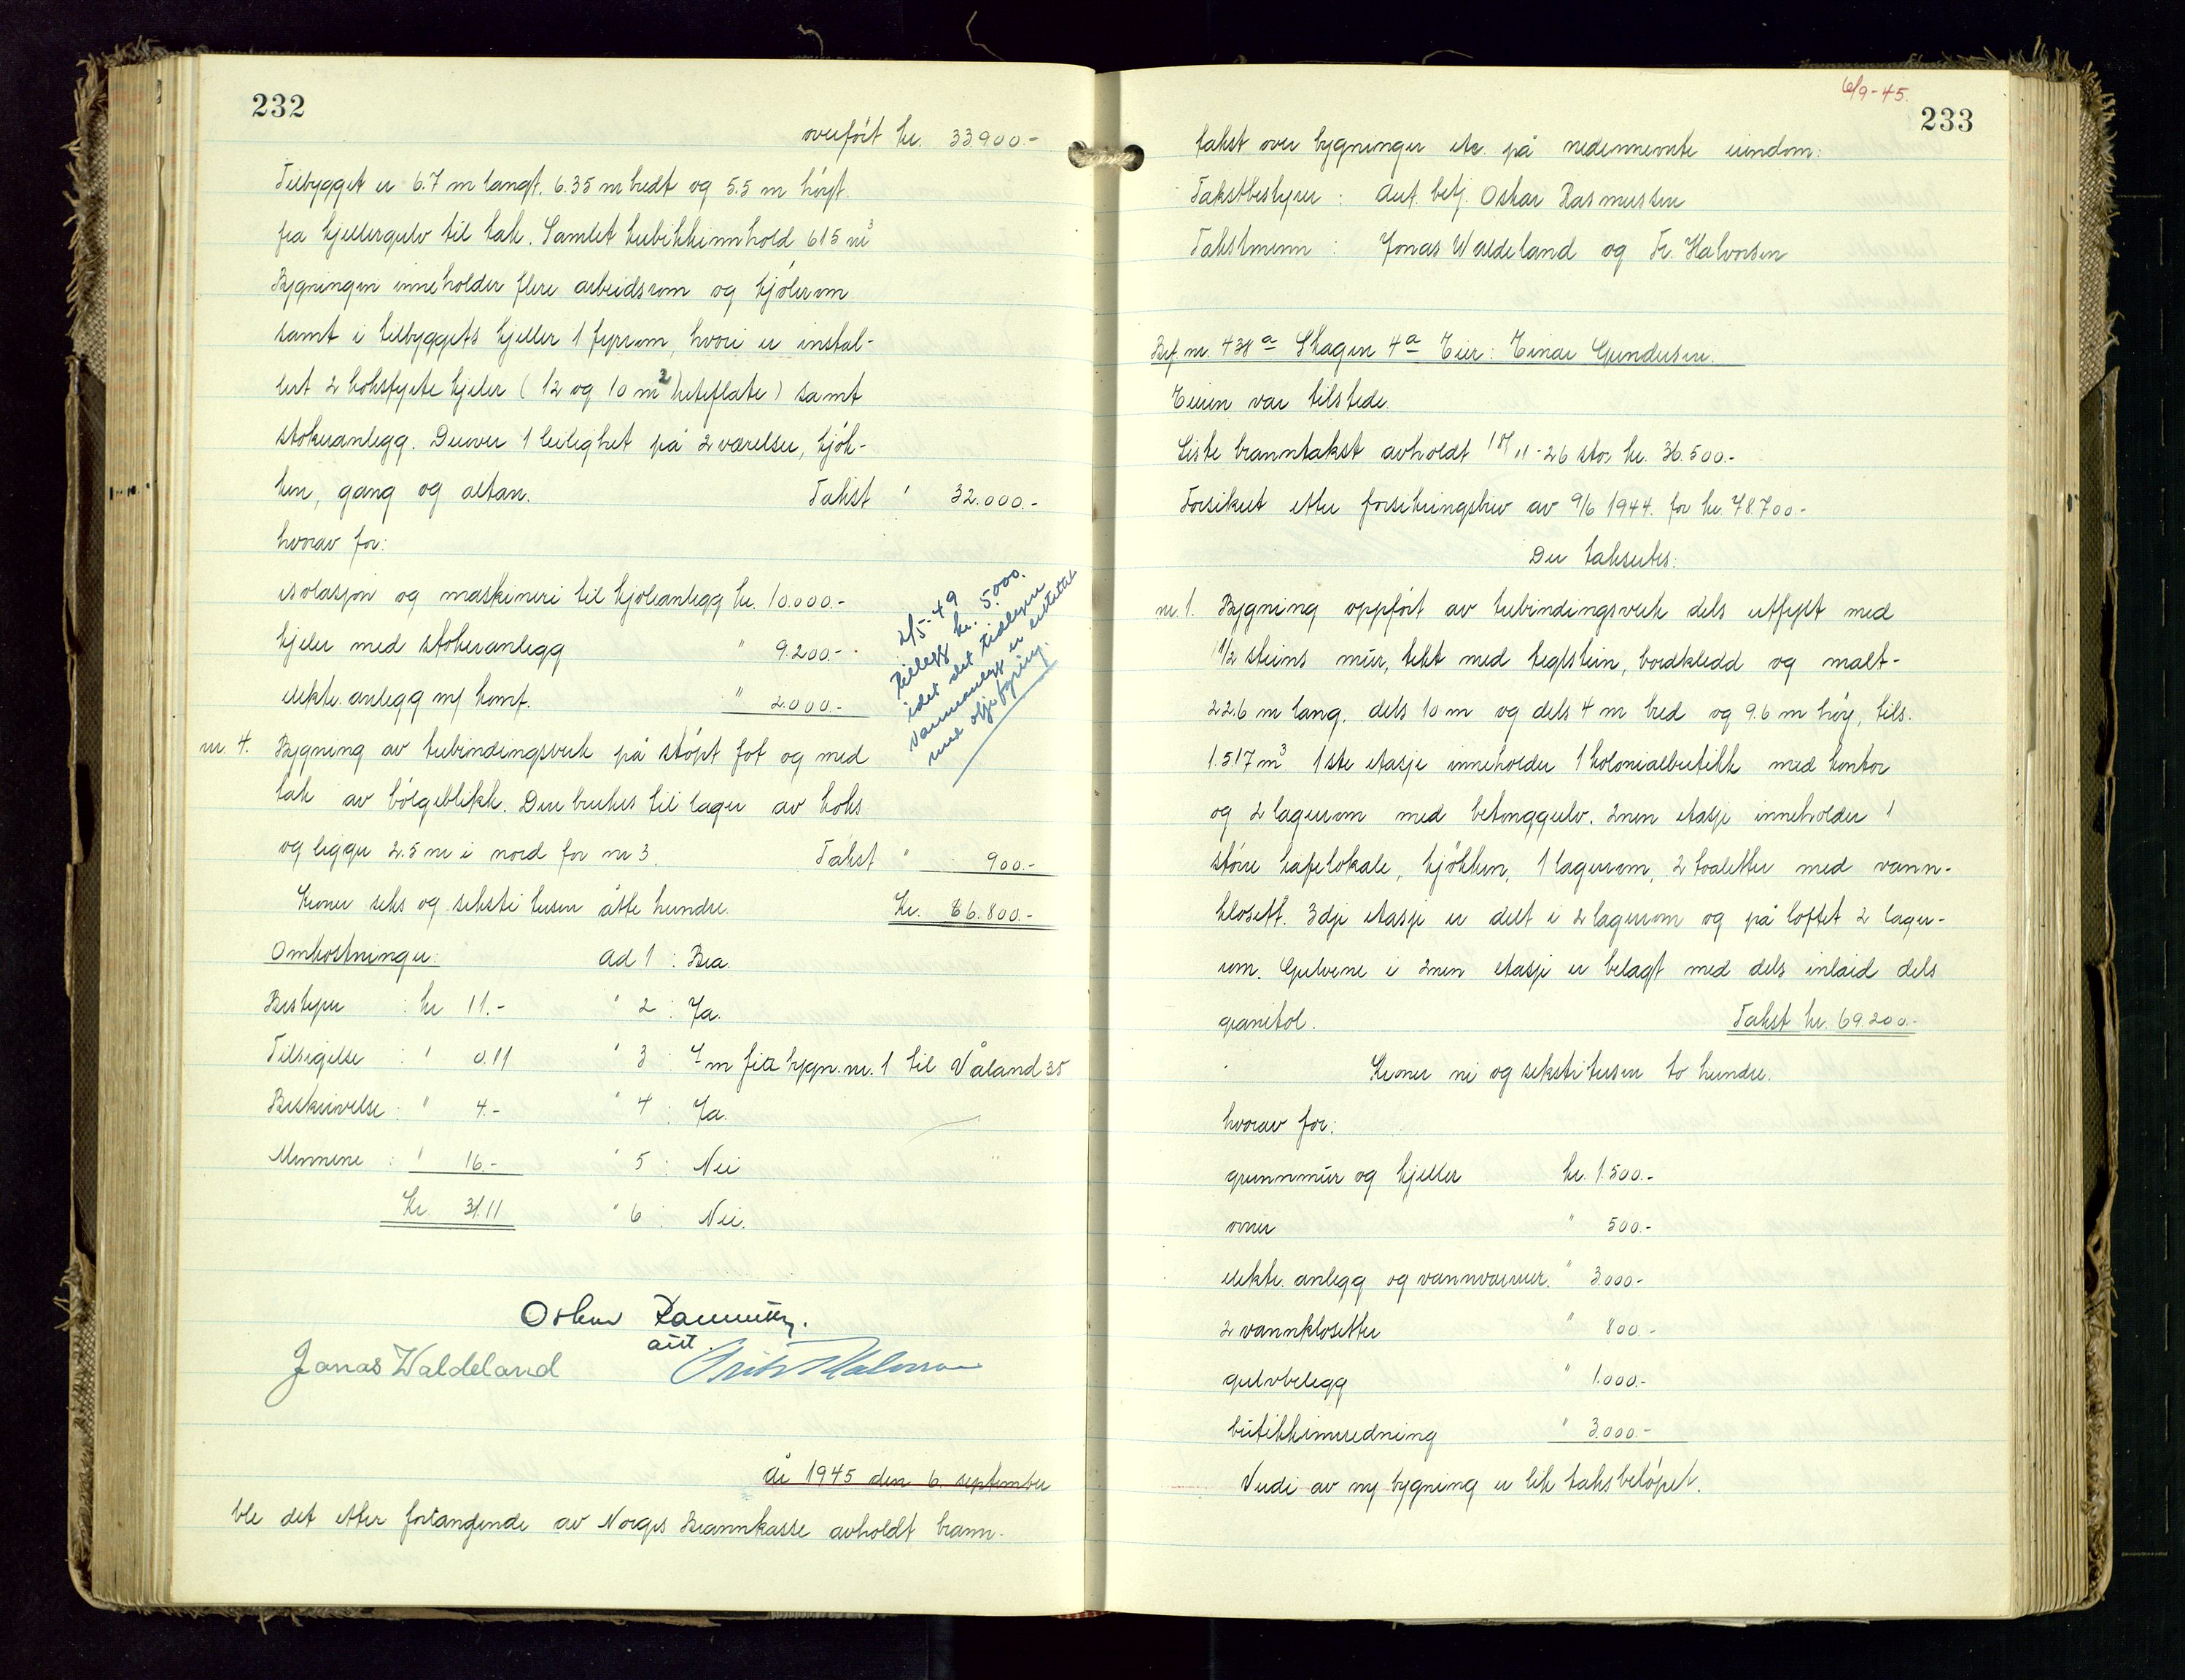 232
overført kr. 33900.-
Tilbygget er 6.7 m langt. 6.35 m bredt og 5.5 m høyt.
fra kjellergulv til tak. Samlet kubikkinnhold 615 m³
Bygningen inneholder flere arbeidsrom og kjølerom
samt i tilbyggets kjeller 1 fyrrom, hvori er instal-
lert 2 koksfyrte kjeler (12 og 10 m² heteflate) samt
stokeranlegg. Derover 1 leilighet på 2 værelser, kjøk-
ken, gang og altan. Takst " 32.000.-
hvorav for:
isolasjon og maskineri til kjøleanlegg kr. 10.000.-
kjeler med stokeranlegg " 9.200.-
elektr. anlegg m/ komf. " 2.000.-
2/5-49
tillegg kr. 5.000.
idet det tidligere
varmeanlegg er erstattet
med oljefyring.
nr. 4. Bygning av trebindingsverk på støpt fot og med
tak av bølgeblikk. Den brukes til lager av koks
og ligger 2.5 m i nord for nr 3. Takst " 900.-
Kroner seks og seksti tusen åtte hundre. Kr. 66.800.-
Omkostninger: ad 1 : Bra.
Bestyrer : kr 11.- " 2 : Ja.
Tilsigelse : " 0.11 " 3 : 7 m fra bygn. nr. 1 til Våland 35
Beskrivelse : " 4.- " 4 : Ja.
Mennene : " 16.- " 5 : Nei
Kr. 31.11 " 6 : Nei.
Oskar Rasmussen.
aut.
Jonas Waldeland Fritz Halvorsen
År 1945 den 6. september
ble det etter forlangende av Norges Brannkasse avholdt brann-
6/9-45.
233
takst over bygninger etc. på nedennevnte eiendom:
Takstbestyrer : Aut. betj. Oskar Rasmussen
Takstmenn : Jonas Waldeland og Fr. Halvorsen
Brf. nr. 438a Skagen 4a Eier: Einar Gundersen.
Eieren var tilstede.
Siste branntakst avholdt 18/11-26 stor kr. 36.500.-
Forsikret etter forsikringsbrev av 9/6 1944. for kr. 78.700.-
Der takseres:
nr. 1. Bygning oppført av trebindingsverk dels utfylt med
1/2 steins mur, tekt med teglstein, bordkledd og malt-
22.6 m lang, dels 10 m og dels 4 m bred og 9.6 m høy, tils.
1.517 m³ 1ste etasje inneholder 1 kolonialbutikk med kontor
og 2 lagerrom med betonggulv. 2nen etasje inneholder 1
større kafelokale, kjøkken, 1 lagerrom, 2 toaletter med vann-
klosett. 3dje etasje er delt i 2 lagerrom og på loftet 2 lager-
rom. Gulvene i 2nen etasje er belagt med dels inlaid dels
granitol. Takst kr. 69.200.-
Kroner ni og seksti tusen to hundre.
hvorav for:
grunnmur og kjeller kr. 1.500.-
ovner " 500.-
elektr. anlegg og vannvarmer. " 3.000-
2 vannklosetter " 800.-
gulvbelegg " 1.000.-
butikkinnredning " 3.000.-
Verdi av ny bygning er lik taksbeløpet.